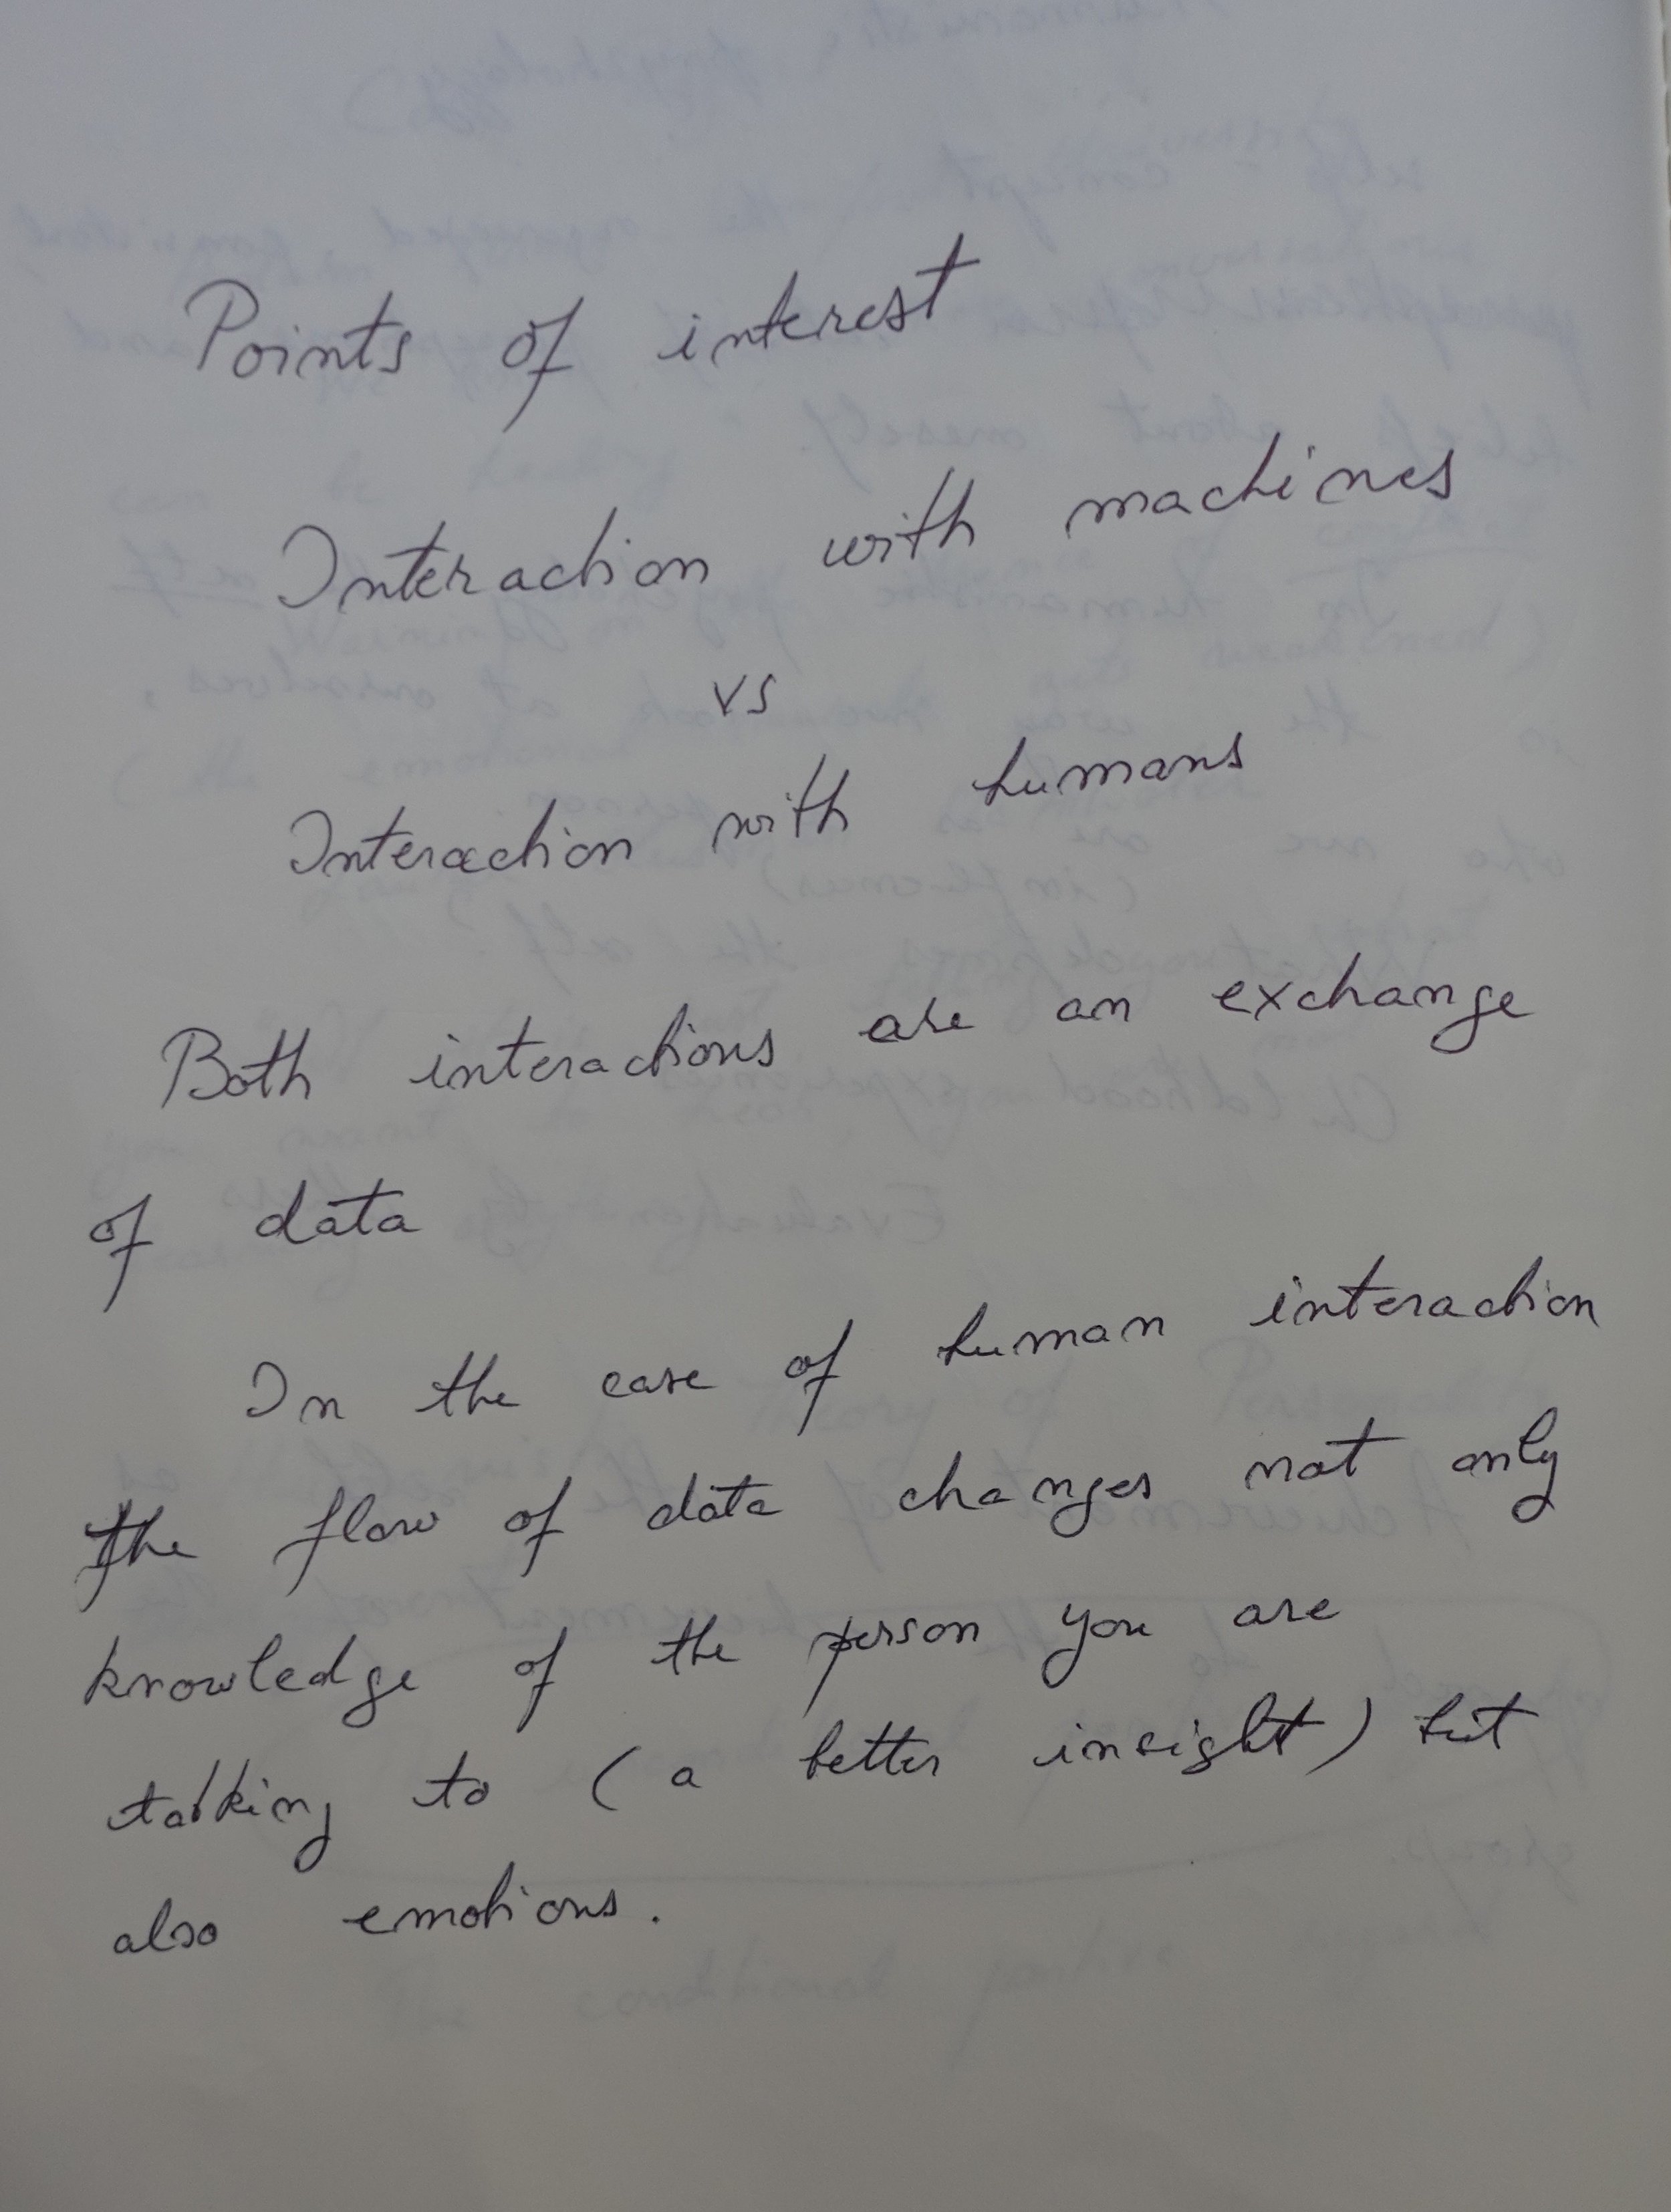 Points of interest
Interaction with machines
vs
Interaction with humans
Both interactions are an exchange
of data
In the case of human interaction
the flow of data changes not only
knowledge of the person you are
talking to (a better insight) but
also emotions.